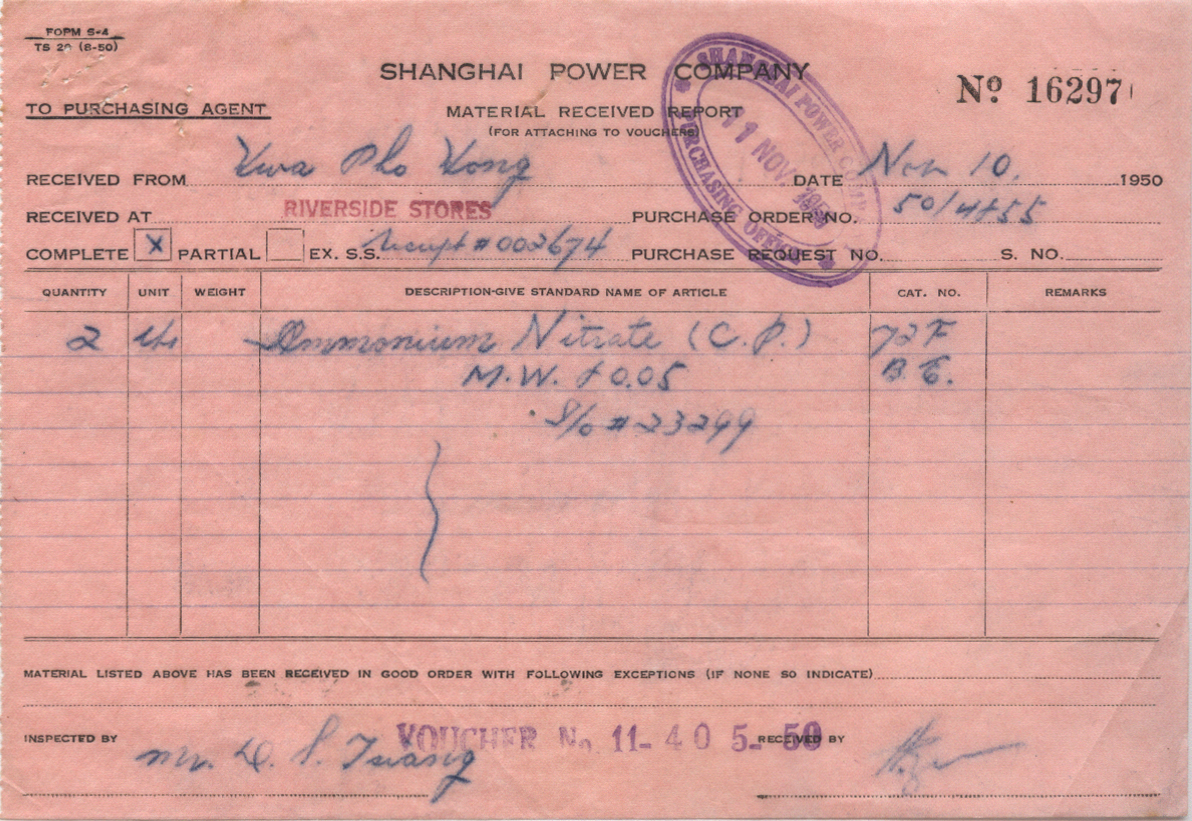 FORM S-4
TS 29 (8-50)
SHANGHAI POWER COMPANY
No 16297
TO PURCHASING AGENT
MATERIAL RECEIVED REPORT
(FOR ATTACHING TO VOUCHERS)
RECEIVED FROM Kwa Pho Kong DATE Nov 10. 1950
RECEIVED AT RIVERSIDE STORES PURCHASE ORDER NO. 50/4455
COMPLETE X PARTIAL EX. S.S. receipt #002674 PURCHASE REQUEST NO. S. NO.
SHANGHAI POWER COMPANY
11 NOV. 1950
PURCHASING OFFICE
QUANTITY UNIT WEIGHT DESCRIPTION-GIVE STANDARD NAME OF ARTICLE CAT. NO. REMARKS
2 Ammonium Nitrate (C.P.) 72F
M.W. 80.05 B.6.
S/o #23299
MATERIAL LISTED ABOVE HAS BEEN RECEIVED IN GOOD ORDER WITH FOLLOWING EXCEPTIONS (IF NONE SO INDICATE)
VOUCHER No. 11-405-50
INSPECTED BY Mr. D. S. Tsang RECEIVED BY